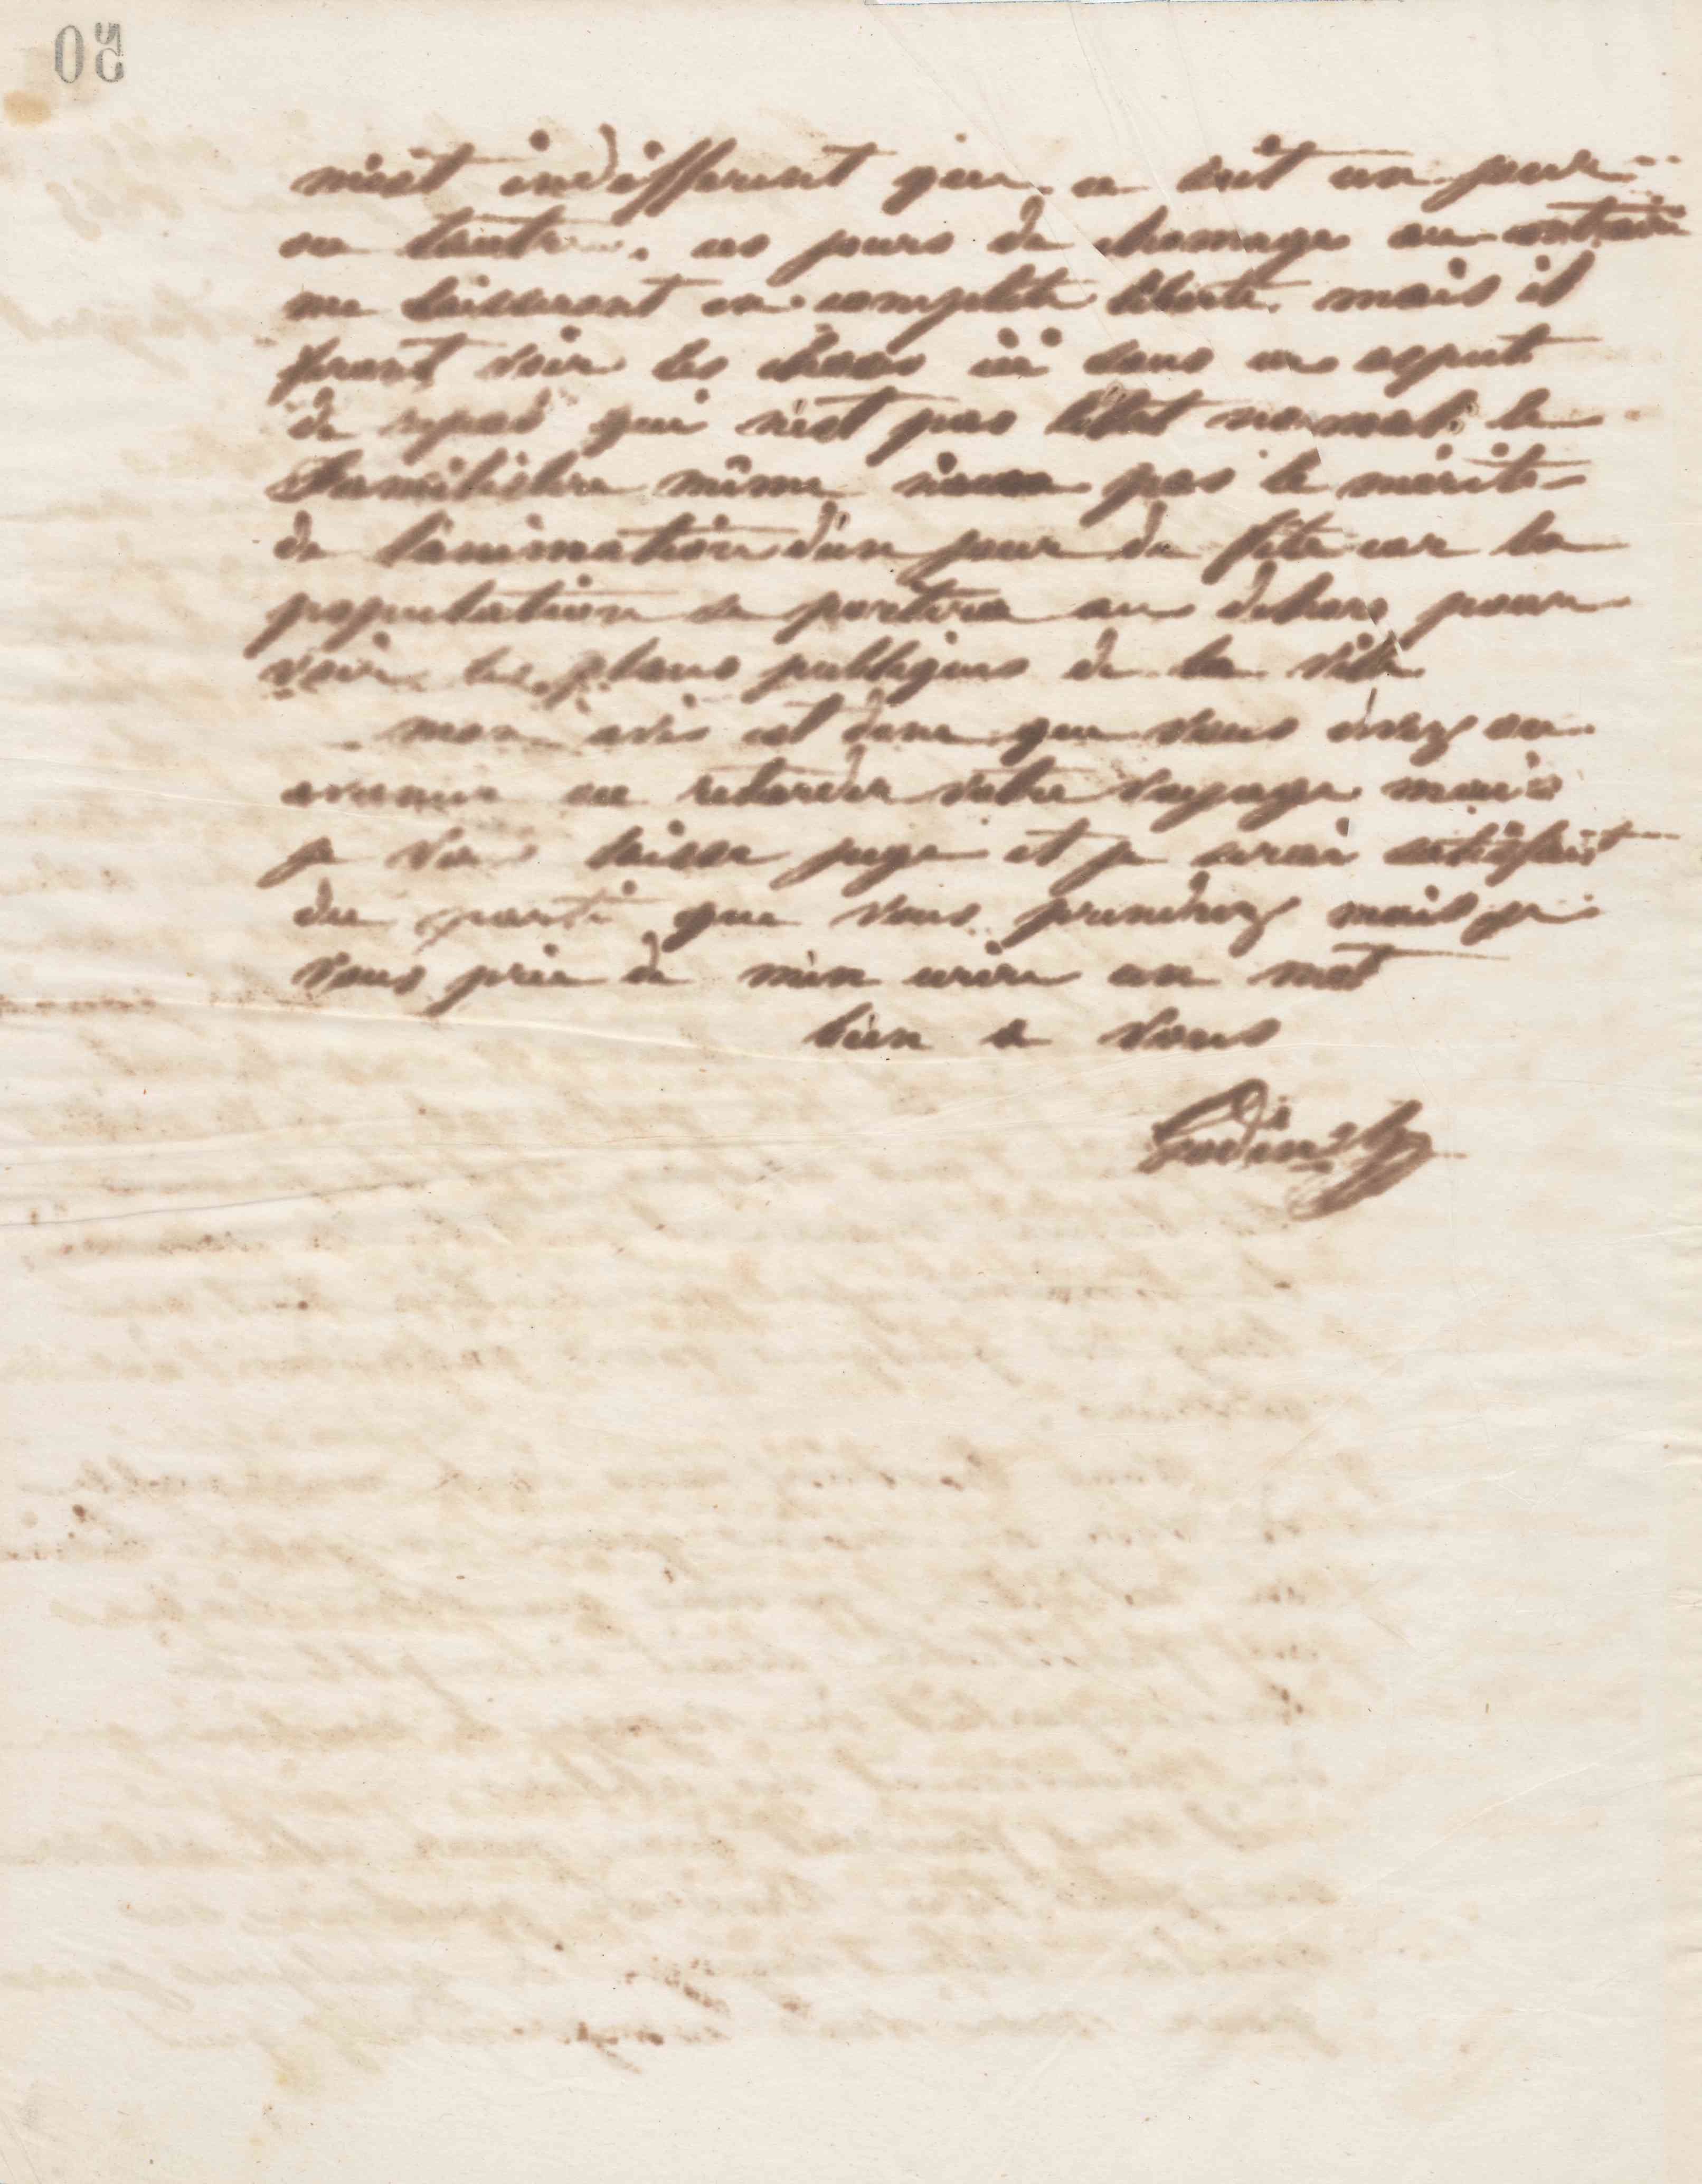 50
m'est indifferent que ce soit un jour
ou l'autre. ces jours de chomage au contraire
me laisseront en complète liberté. mais il
feront voir les choses ici sous un aspect
de repos qui n'est pas l'état normal. le
Familistère même n'aura pas le mérite
de l'animation d'un jour de fête car la
population se portera au dehors pour
voir les places publiques de la ville
mon avis est donc que vous devez ou
avancer ou retarder votre voyage mais
je vous laisse juge et je serai satisfait
du parti que vous prendrez mais je
vous prie de m'en ecrire un mot
bien a vous
Godin